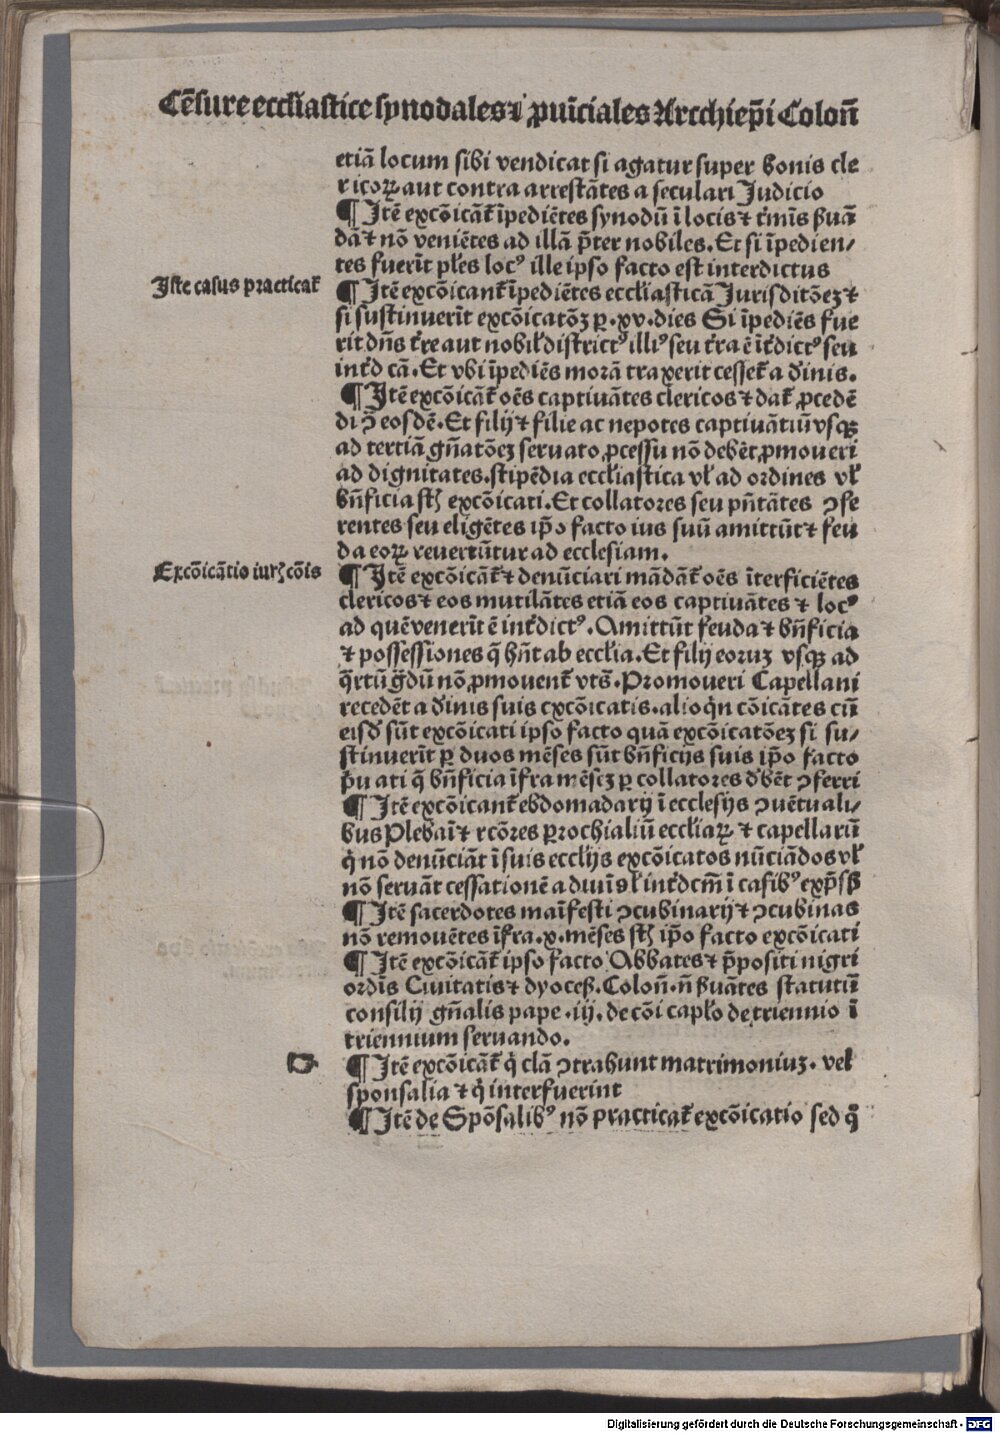 Cēsure eccliastice synodales ⁊ ꝓuīciales Arcchiep̄i Coloñ
etiā locum sibi vendicat si agatur super bonis cle
ricoꝝ aut contra arrestātes a seculari Judicio
¶ Itē excōicāt̄ īpediētes synodū ī locis ⁊ t̄mīs ẞuā
dā ⁊ nō veniētes ad illā p̄ter nobiles. Et si īpedien/
tes fuerīt pl̄es locꝰ ille ipso facto est interdictus
Iste casus practicat̄
¶ Itē excōicant̄ īpediētes eccliasticā Jurisditōeꝫ ⁊
si sustinuerīt excōicatōꝫ ꝑ .xv. dies Si īpediēs fue
rit dn̄s t̄re aut nobil̄ districtꝰ illiꝰ seu t̄ra ē īt̄dictꝰ seu
int̄d cā. Et vbi īpediēs morā traxerit cesset̄ a d̄inis.
¶ Itē excōicāt̄ oēs captiuātes clericos ⁊ dat̄ ꝓcedē
di ꝯ̄ eosdē. Et filij ⁊ filie ac nepotes captiuātiū vsqꝫ
ad tertiā gn̄atōeꝫ seruato ꝓcessu nō debēt ꝓmoueri
ad dignitates. stipēdia eccliastica vl̄ ad ordines vl̄
bn̄ficia st̄ excōicati. Et collatores seu pn̄tātes ꝯfe
rentes seu eligētes ip̄o facto ius suū amittūt ⁊ feu
da eoꝝ reuertūtur ad ecclesiam.
Excōicātio iurꝭ cōis
¶ Itē excōicāt̄ ⁊ denūciari mādāt̄ oēs īterficiētes
clericos ⁊ eos mutilātes etiā eos captiuātes ⁊ locꝰ
ad quē venerīt ē int̄dictꝰ. Amittūt feuda ⁊ bn̄ficia
⁊ possessiones q̄ hn̄t ab ecclia. Et filij eoruꝫ vsqꝫ ad
q̄rtū g̈dū nō ꝓmouent̄ vts̄. Promoueri Capellani
recedēt a d̄inis suis excōicatis. alioqͥn cōicātes cū
eisd̄ sūt excōicati ipso facto quā excōicatōeꝫ si su/
stinuerīt ꝑ duos mēses sūt bn̄ficijs suis ip̄o facto
p̄uati q̄ bn̄ficia īfra mēseꝫ ꝑ collatores d̄bēt ꝯferri
¶ Itē excōicant̄ ebdomadarij ī ecclesijs ꝯuētuali/
bus Plebaī ⁊ rcōres ꝑrochialiū eccliaꝝ ⁊ capellarū
qͥ nō denūciāt ī suis ecclijs excōicatos nūciādos vl̄
nō seruāt cessationē a diuīs vl̄ int̄dcm̄ ī casibꝰ exp̄ss̄
¶ Itē sacerdotes maīfesti ꝯcubinarij ⁊ ꝯcubinas
nō remouētes īfra .x. mēses st̄ ip̄o facto excōicati
¶ Itē excōicāt̄ ipso facto Abbates ⁊ p̄positi nigri
ordīs Ciuitatis ⁊ dyoceß. Coloñ. n̄ ẞuātes statutū
consilij gn̄alis pape .iij. de cōi capl̄o de triennio ī
triennium seruando.
☞
¶ Itē excōicāt̄ qͥ clā ꝯtrahunt matrimoniuꝫ. vel
sponsalia ⁊ qͥ interfuerint
¶ Itē de Spōsalibꝰ nō practicat̄ excōicatio sed qͥ
Digitalisierung gefördert durch die Deutsche Forschungsgemeinschaft - DFG